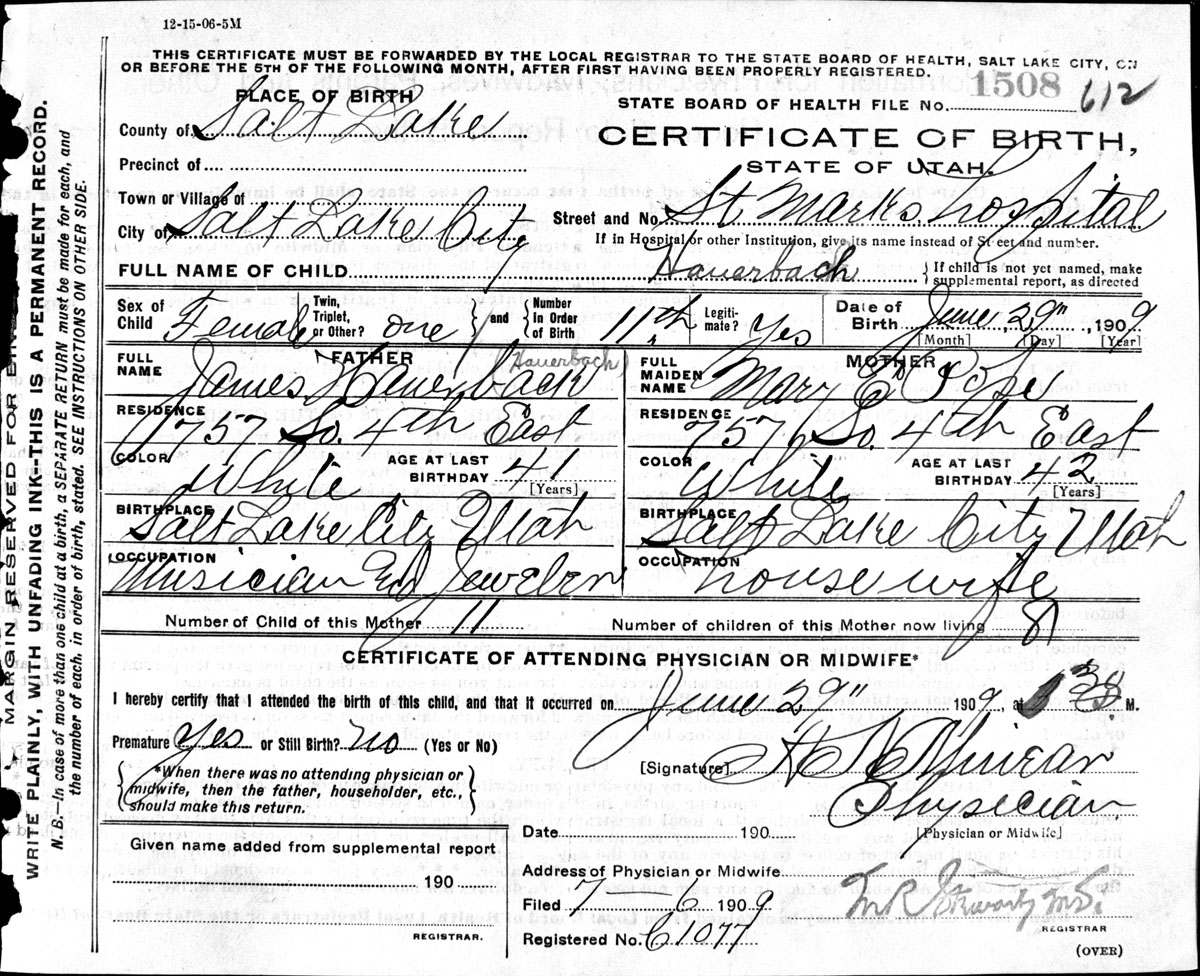 12-15-06-5M
THIS CERTIFICATE MUST BE FORWARDED BY THE LOCAL REGISTRAR TO THE STATE BOARD OF HEALTH, SALT LAKE CITY, ON
OR BEFORE THE 5TH OF THE FOLLOWING MONTH, AFTER FIRST HAVING BEEN PROPERLY REGISTERED.
PLACE OF BIRTH
STATE BOARD OF HEALTH FILE NO. 1508 612
County of Salt Lake
CERTIFICATE OF BIRTH,
Precinct of
STATE OF UTAH.
Town or Village of
City of Salt Lake City
Street and No. St Marks Hospital
If in Hospital or other Institution, give its name instead of Street and number.
FULL NAME OF CHILD Hauerbach
If child is not yet named, make
supplemental report, as directed
Sex of Child Female
Twin, Triplet, or Other? one
and
Number In Order of Birth 11th
Legitimate? Yes
Date of Birth June 29", 1909
[Month] [Day] [Year]
FATHER
FULL NAME James Hauerback (Hauerbach)
RESIDENCE 1757 So. 4th East
COLOR White
AGE AT LAST BIRTHDAY 41
[Years]
BIRTHPLACE Salt Lake City Utah
OCCUPATION Musician Jeweler
MOTHER
FULL MAIDEN NAME Mary E Pope
RESIDENCE 757 So. 4th East
COLOR White
AGE AT LAST BIRTHDAY 42
[Years]
BIRTHPLACE Salt Lake City Utah
OCCUPATION housewife
Number of Child of this Mother 11
Number of children of this Mother now living 8
CERTIFICATE OF ATTENDING PHYSICIAN OR MIDWIFE*
I hereby certify that I attended the birth of this child, and that it occurred on June 29" 1909, at M.
Premature Yes or Still Birth? no (Yes or No)
*When there was no attending physician or
midwife, then the father, householder, etc.,
should make this return.
[Signature]
Physician
[Physician or Midwife]
Date 190
Given name added from supplemental report
190
REGISTRAR.
Address of Physician or Midwife
Filed 7 6 1909
REGISTRAR
Registered No. C1077
(OVER)
MARGIN RESERVED FOR
WRITE PLAINLY, WITH UNFADING INK-THIS IS A PERMANENT RECORD.
N.B.-In case of more than one child at a birth, a SEPARATE RETURN must be made for each, and
the number of each, in order of birth, stated. SEE INSTRUCTIONS ON OTHER SIDE.